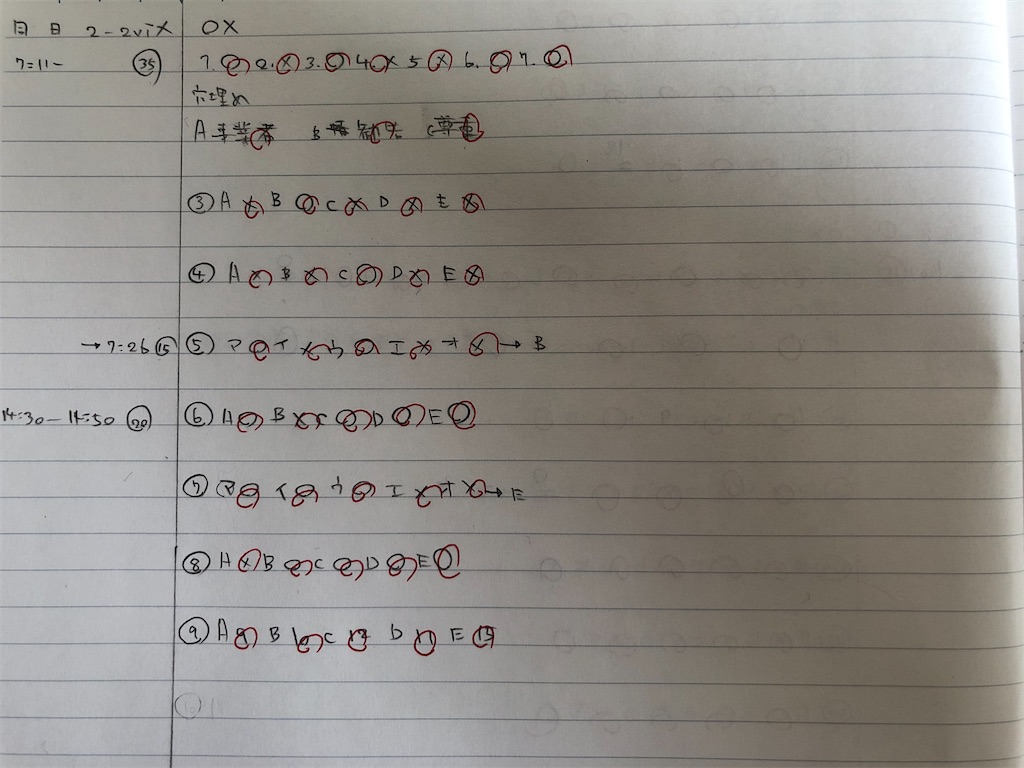 月 日 2-2 OX
7=11- ㉟ 1. ○ 2. × 3. ○ 4 × 5 × 6. ○ 7. ○
穴埋め
A 事業者 B 知 C 尊重
③ A × B ○ C × D × E ×
④ A × B × C ○ D × E ×
→7=26 ⑮ ⑤ ア ○ イ × ウ ○ エ × オ × → B
14:30-14:50 ⑳ ⑥ A ○ B × C ○ D ○ E ○
⑦ ア ○ イ ○ ウ ○ エ × オ × → E
⑧ A × B ○ C ○ D ○ E ○
⑨ A B C D E